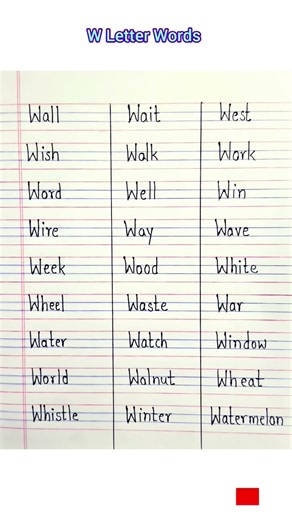 W Letter Words
Wall Wait West
Wish Walk Work
Word Well Win
Wire Way Wave
Week Wood White
Wheel Waste War
Water Watch Window
World Walnut Wheat
Whistle Winter Watermelon